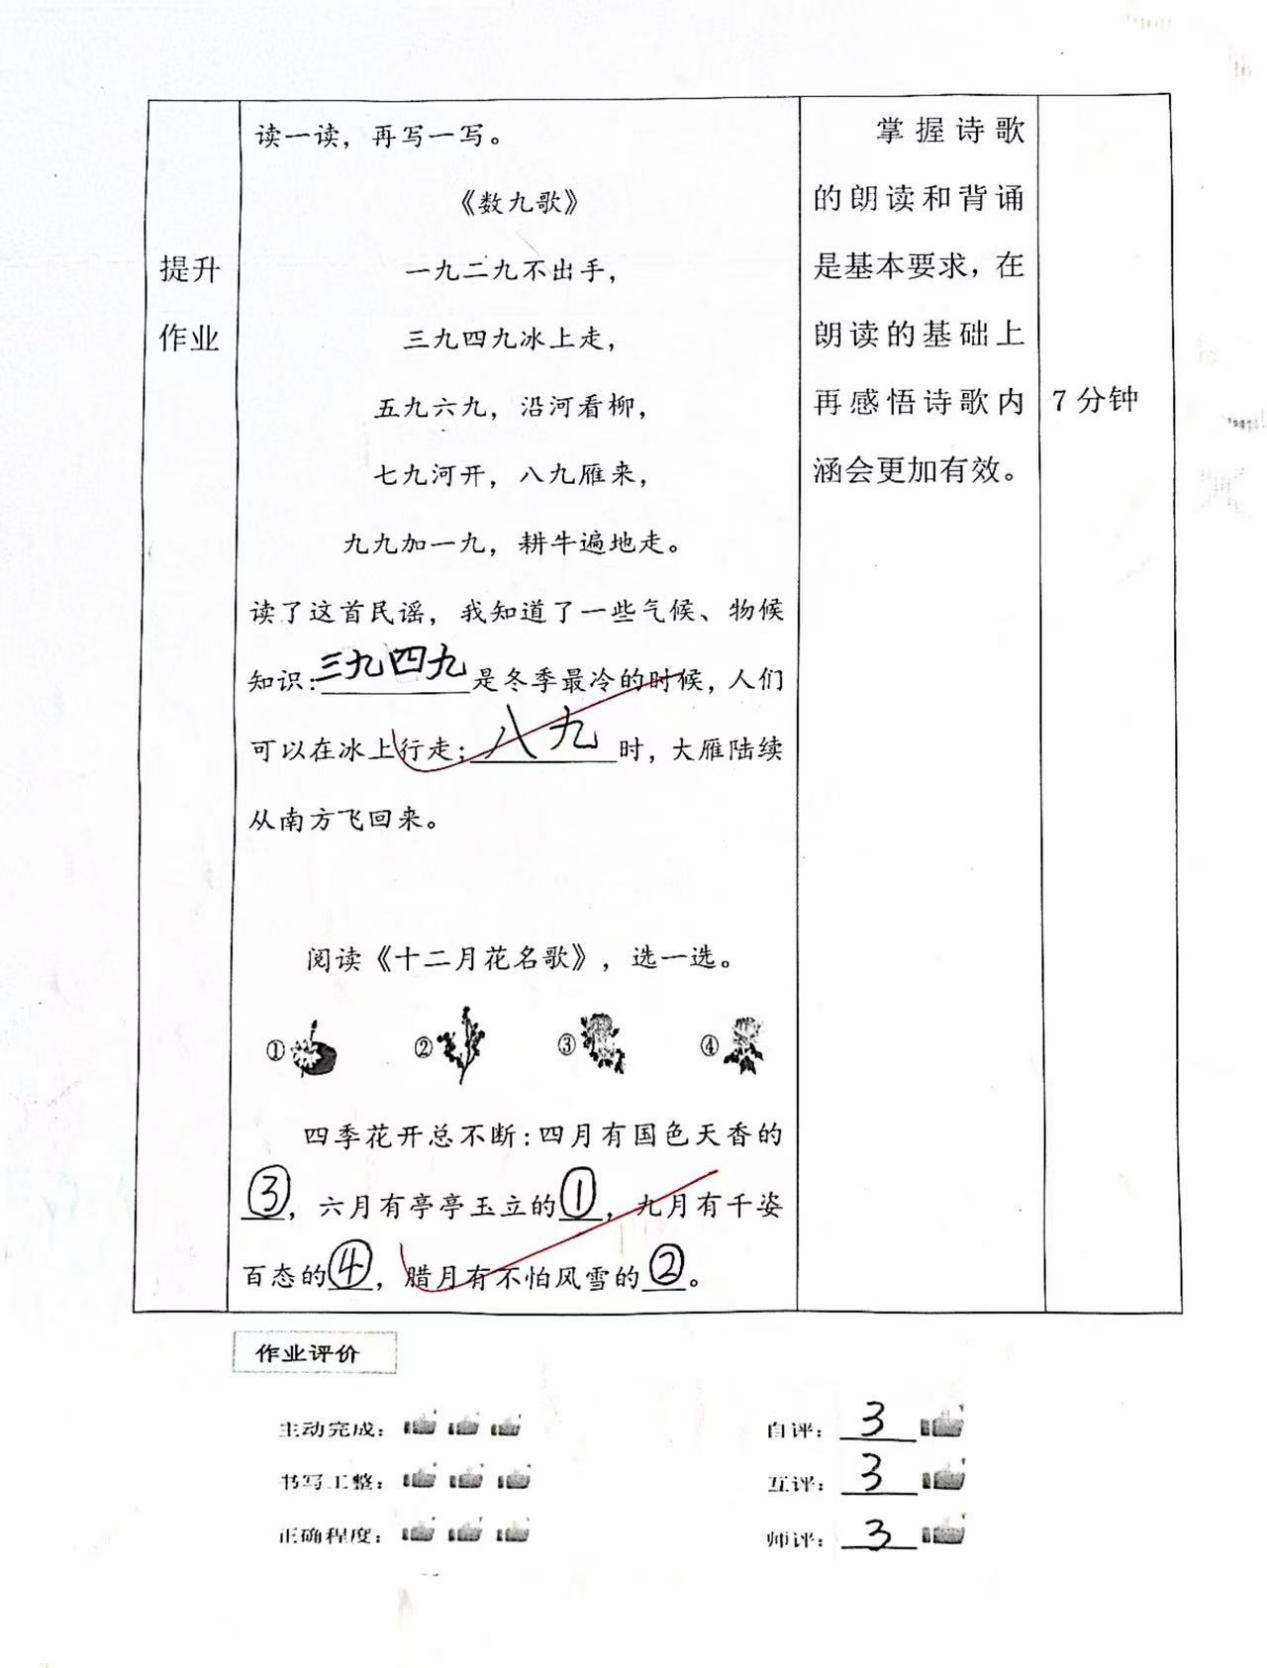 提升
作业
读一读，再写一写。
《数九歌》
一九二九不出手，
三九四九冰上走，
五九六九，沿河看柳，
七九河开，八九雁来，
九九加一九，耕牛遍地走。
读了这首民谣，我知道了一些气候、物候
知识：三九四九是冬季最冷的时候，人们
可以在冰上行走；八九时，大雁陆续
从南方飞回来。
阅读《十二月花名歌》，选一选。
① ② ③ ④
四季花开总不断：四月有国色天香的
③，六月有亭亭玉立的①，九月有千姿
百态的④，腊月有不怕风雪的②。
掌握诗歌
的朗读和背诵
是基本要求，在
朗读的基础上
再感悟诗歌内
涵会更加有效。
7分钟
作业评价
主动完成：
自评：3
书写工整：
互评：3
正确程度：
师评：3